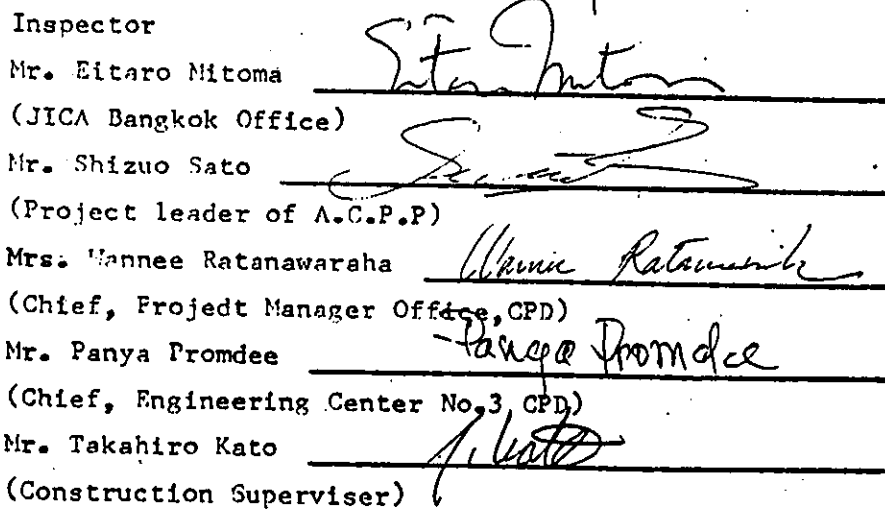 Inspector
Mr. Eitaro Mitoma
(JICA Bangkok Office)
Mr. Shizuo Sato
(Project leader of A.C.P.P)
Mrs. Wannee Ratanawaraha
(Chief, Projedt Manager Office,CPD)
Mr. Panya Promdee Panya Promdee
(Chief, Engineering Center No.3 CPD)
Mr. Takahiro Kato
(Construction Superviser)